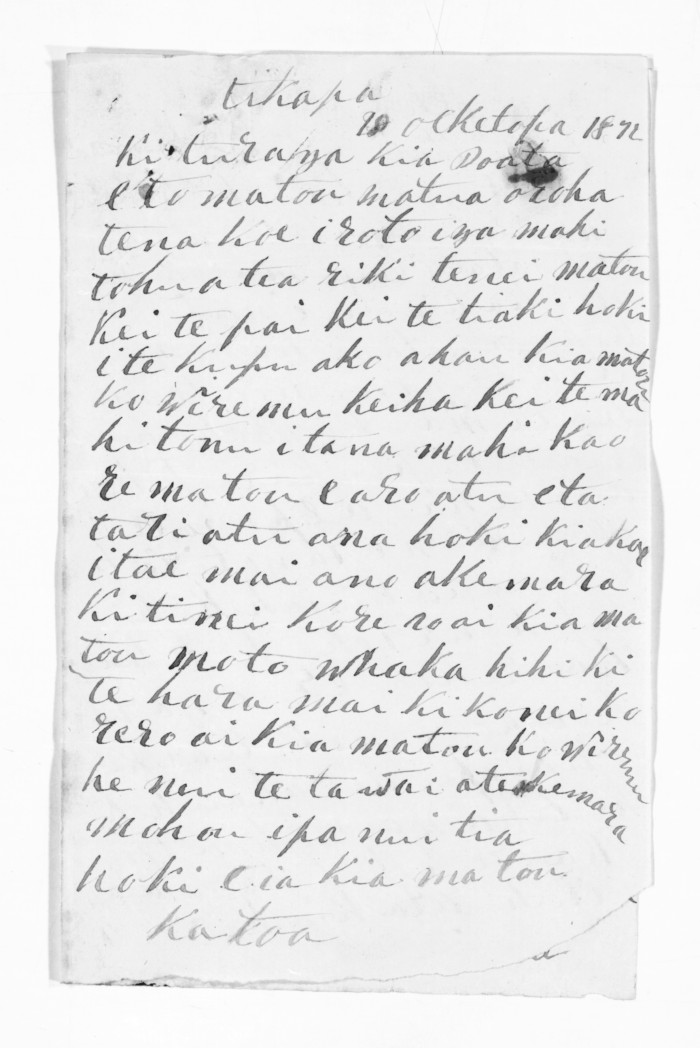 tikapa
10 ocketopa 1872
Ki turaga Kia Poata
e to matou matua aroha
tena koe i roto i ga mahi
tohu a tea riki tenei matou
Kei te pai Kei te tiaki hoki
i te Kupu ako ahau Kia matou
Ko Wiremu Keiha Kei te ma
hi tonu i tana mahi Kao
re matou e aro atu e ta
tari atu ana hoki Kia koe
i tae mai ano a kemara
Ki tinei Kore ro ai Kia ma
tou mo to whaka hihi Ki
te hara mai Ki Konei Ko
rero ai Kia matou Ko Wiremu
he nui te ta wai a te Kemara
mohou i pa nui tia
hoki e ia Kia ma tou
Ka toa